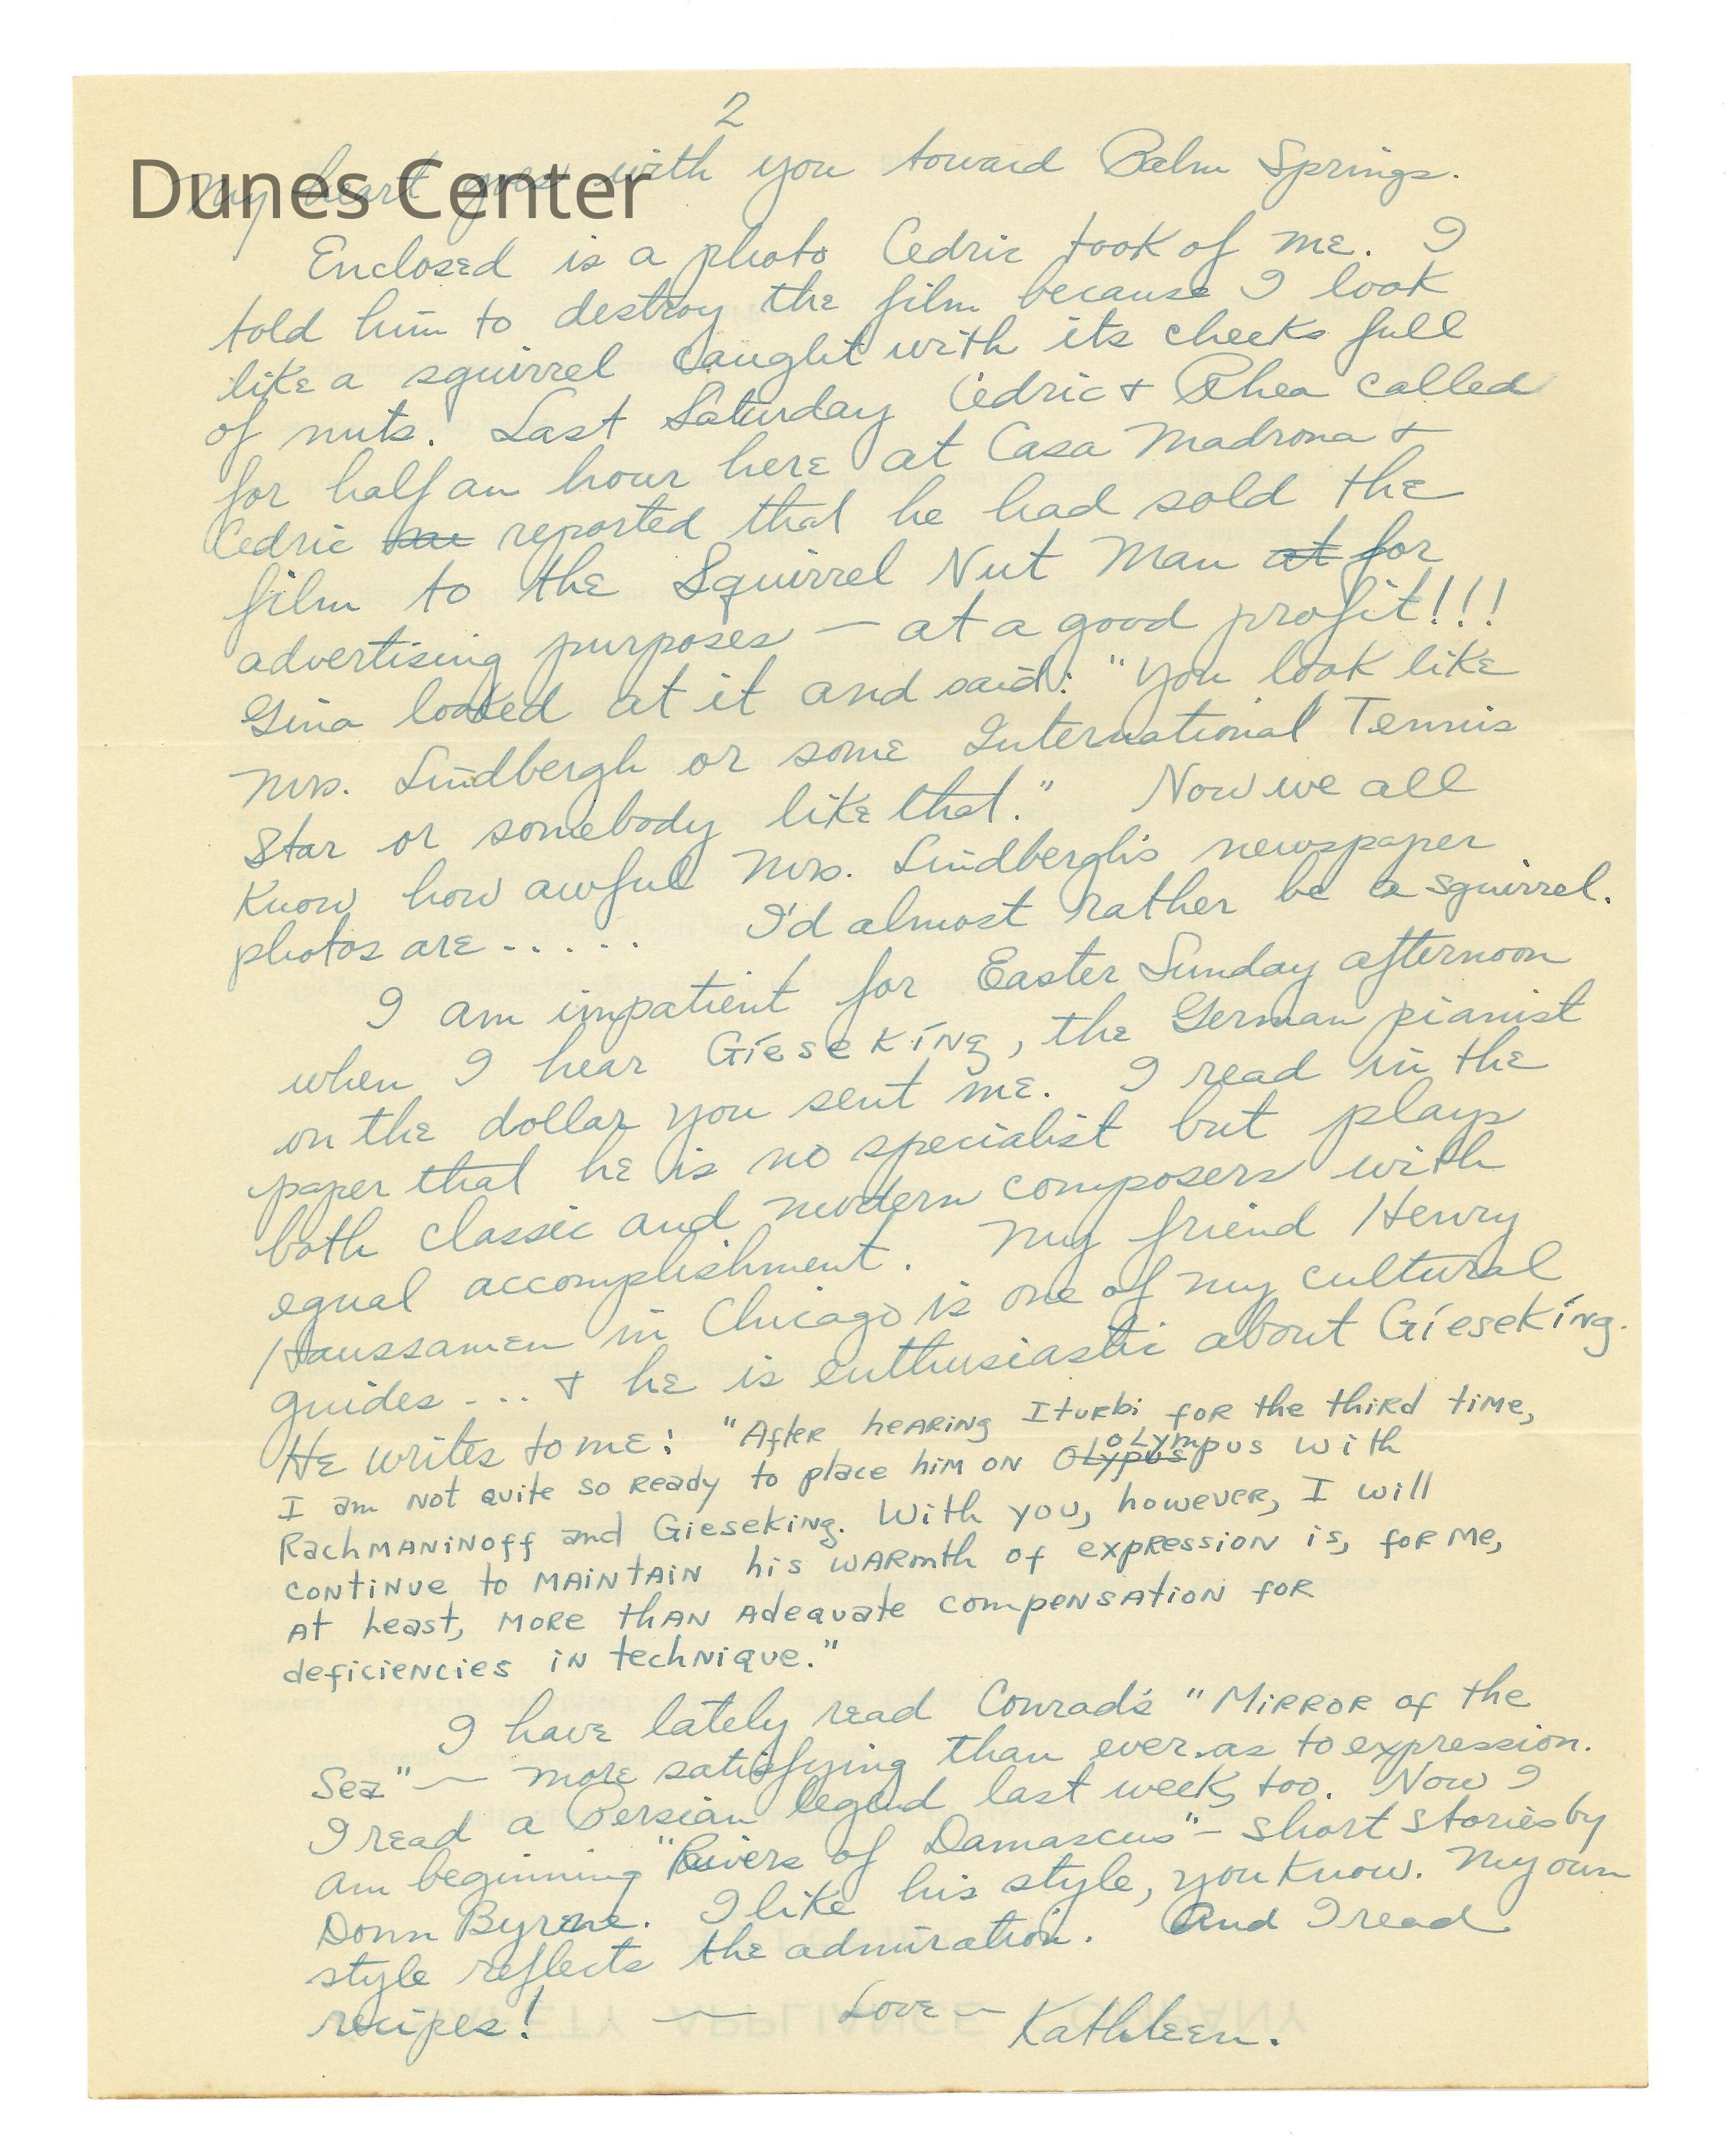 2
Dunes Center
My heart goes with you toward Palm Springs.
Enclosed is a photo Cedric took of me. I
told him to destroy the film because I look
like a squirrel caught with its cheeks full
of nuts. Last Saturday Cedric & Rhea called
for half an hour here at Casa Madrona &
Cedric reported that he had sold the
film to the Squirrel Nut Man at for
advertising purposes — at a good profit!!!
Gina looked at it and said: "You look like
Mrs. Lindbergh or some International Tennis
Star or somebody like that." Now we all
know how awful Mrs. Lindbergh's newspaper
photos are..... I'd almost rather be a squirrel.
I am impatient for Easter Sunday afternoon
when I hear Gieseking, the German pianist
on the dollar you sent me. I read in the
paper that he is no specialist but plays
both classic and modern composers with
equal accomplishment. My friend Henry
Haussamen in Chicago is one of my cultural
guides.... & he is enthusiastic about Gieseking.
He writes to me: "After hearing Iturbi for the third time,
I am not quite so ready to place him on Olypus Olympus with
Rachmaninoff and Gieseking. With you, however, I will
continue to maintain his warmth of expression is, for me,
at least, more than adequate compensation for
deficiencies in technique."
I have lately read Conrad's "Mirror of the
Sea" — more satisfying than ever as to expression.
I read a Persian legend last week, too. Now I
am beginning "Rivers of Damascus" – short stories by
Donn Byrne. I like his style, you know. My own
style reflects the admiration. And I read
recipes! — Love — Kathleen.